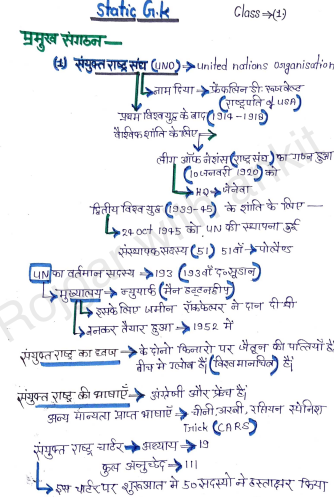 Static G.k
Class →(1)
प्रमुख संगठन —
(1) संयुक्त राष्ट्र संघ (UNO) → united nations organisation
नाम दिया → फ्रेंकलिन डी. रूजवेल्ट
(राष्ट्रपति of USA)
प्रथम विश्व युद्ध के बाद (1914 - 1918)
वैश्विक शांति के लिए →
लीग ऑफ नेशंस (राष्ट्र संघ) का गठन हुआ
(10 जनवरी 1920) को
HQ → जेनेवा
द्वितीय विश्व युद्ध (1939-45) के शांति के लिए —
24 oct 1945 को UN की स्थापना हुई
संस्थापक सदस्य (51) 51वाँ → पोलैण्ड
UN का वर्तमान सदस्य → 193 (193वाँ द. सूडान)
मुख्यालय → न्यूयार्क (मैन हट्टनद्वीप)
इसके लिए जमीन रॉकफेलर ने दान दी थी
बनकर तैयार हुआ → 1952 में
संयुक्त राष्ट्र का ध्वज → के दोनो किनारो पर जैतून की पत्तियाँ हैं
बीच में ग्लोब है। (विश्व मानचित्र) है।
संयुक्त राष्ट्र की भाषाएँ → अंग्रेजी और फ्रेंच है।
अन्य मान्यता प्राप्त भाषाएँ → चीनी, अरबी, रशियन स्पेनिश
Trick (CARS)
संयुक्त राष्ट्र चार्टर → अध्याय → 19
कुल अनुच्छेद → 111
इस चार्टर पर शुरूआत में 50 सदस्यो ने हस्ताक्षर किया